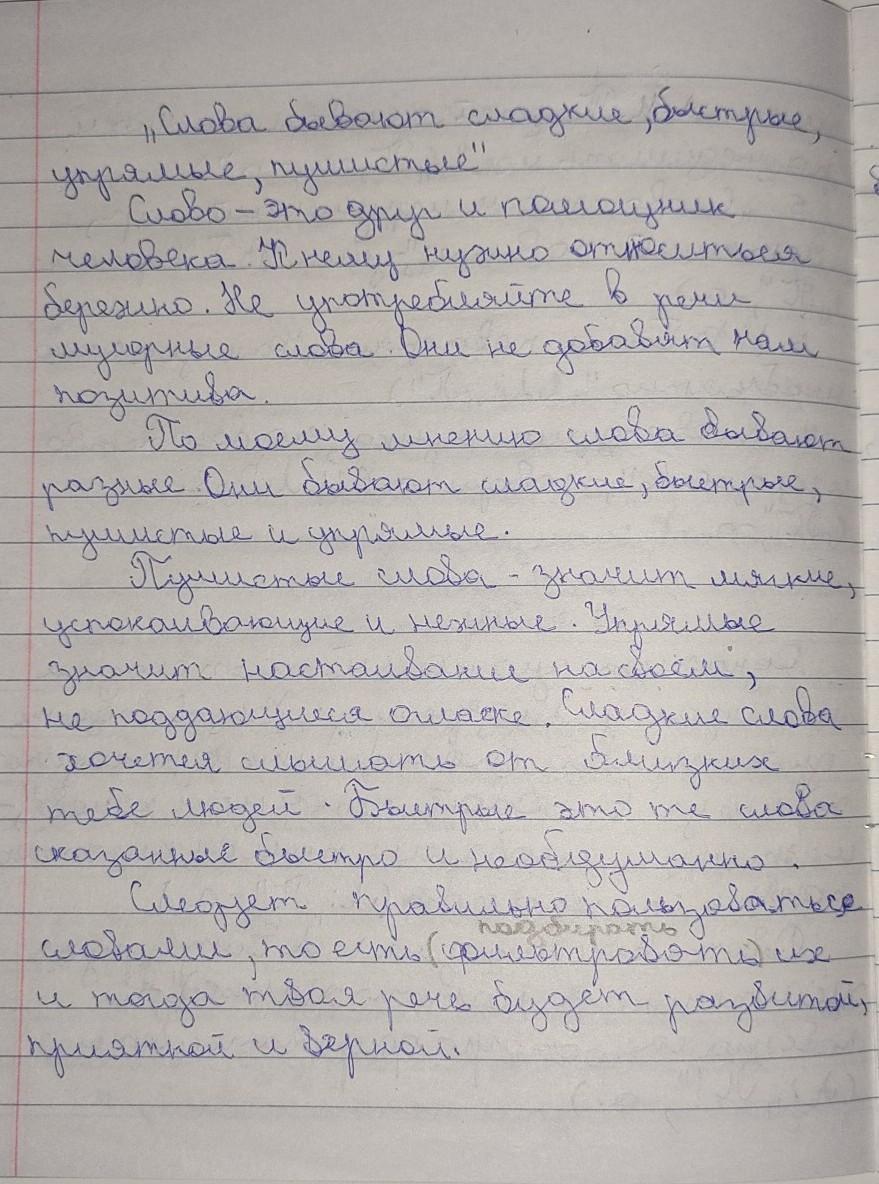 „Слова бывают сладкие, быстрые,
упрямые, пушистые"
Слово – это друг и помощник
человека. К нему нужно относиться
бережно. Не употребляйте в речи
мусорные слова. Они не добавят нам
позитива.
По моему мнению слова бывают
разные. Они бывают сладкие, быстрые,
пушистые и упрямые.
Пушистые слова - значит мягкие,
успокаивающие и нежные. Упрямые
значит настаивание на своём,
не поддающиеся огласке. Сладкие слова
хочется слышать от близких
тебе людей. Быстрые это те слова
сказанные быстро и необдуманно.
Следует правильно пользоваться
подбирать
словами, то есть (фильтровать) их
и тогда твоя речь будет развитой,
приятной и верной.